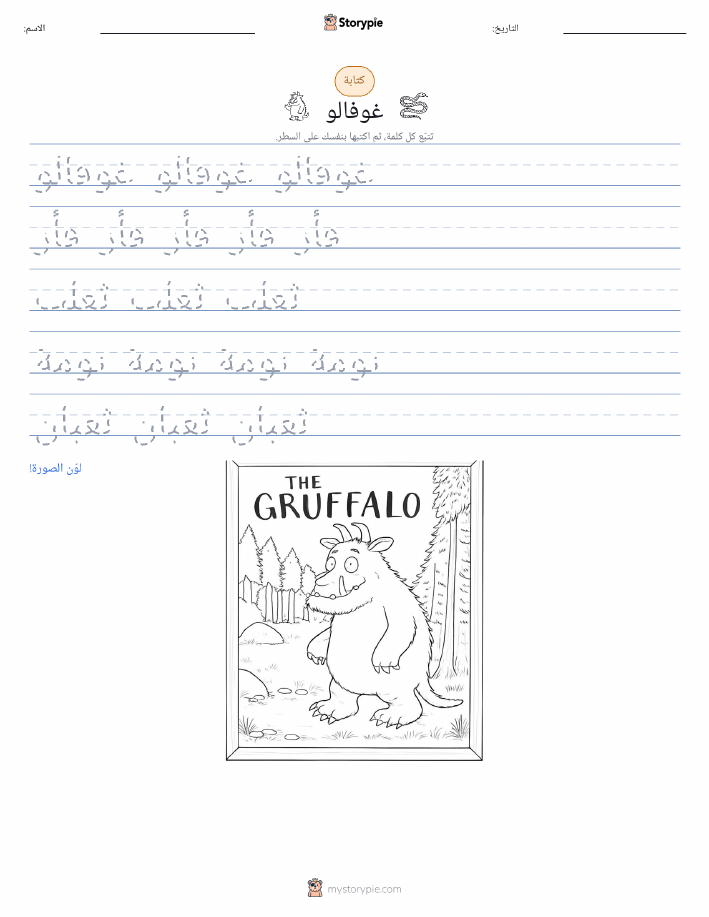 الاسم:
Storypie
التاريخ:
كتابة
غوفالو
تتبّع كل كلمة، ثم اكتبها بنفسك على السطر.
غوفالو غوفالو غوفالو
فأر فأر فأر فأر فأر
ثعلب ثعلب ثعلب
بومة بومة بومة بومة
ثعبان ثعبان ثعبان
لوّن الصورة!
THE
GRUFFALO
mystorypie.com